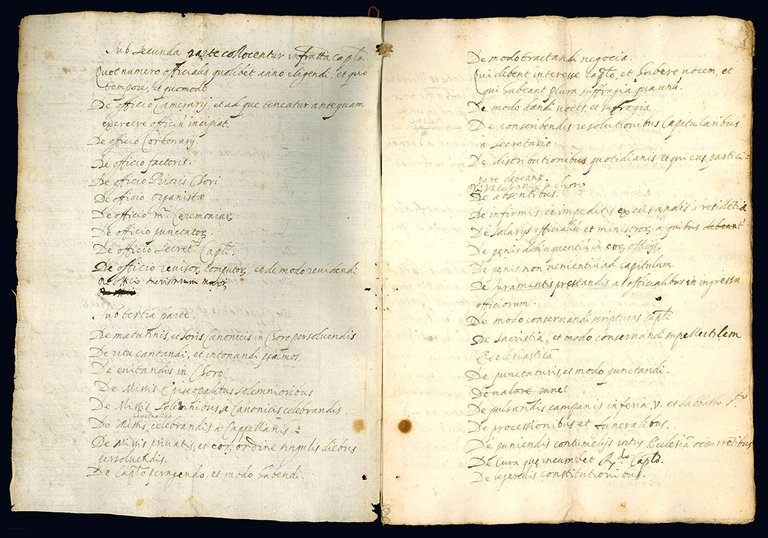 Sub secunda parte collocentur infratta Capla
Quot numero officiales quolibet anno eligendi, et quo
tempore, et quomodo
De officio Camerarij et ad que teneatur antequam
exercere officiū incipiat.
De officio Corbonarij.
De officio factoris.
De officio Prioris Chori
De officio organistæ
De officio mri ceremoniar
De officio punctator
De officio Secret Capli.
De officio revisor computor, et de modo revidendi
De officio
Sub tertia parte.
De matutinis et horis Canonicis in Choro persolvendis
De ritu cantandi, et intonandi psalmos
De evitandis in Choro
De Missis Episcopalibus solemnioribus
De Missis solemnibus a Canonicis celebrandis
De Missis celebrandis a Cappellanis
De Missis privatis, et eor ordine singulis diebus
persolvendis.
De Caplo peragendo, et modo habendi.
De modo tractandi negocia.
Qui debent interesse Caplo, et habere vocem, et
qui habeant plura suffragia qua una.
De modo dandi voces, et suffragia.
De conscribendis resolutionibus Capitularibus
a Secretario.
De distributionibus quotidianis et qui eos partici-
pare debeant.
a choro
De absentibus.
De infirmis, et impeditis excusandis
De salarijs officialiū et ministror, a quibus debeant
De penis delinquentiū in eor officijs
De penis non venientiū ad capitulum
De iuramentis prestandis ab officialibus in ingressu
officiorum.
De modo conservandi scripturas Capli
De sacristia, et modo conservandi supellectilem
Ecclesiasticā
De punctaturis et modo punctandi.
De valore punct
De pulsandis campanis in feria v. et sabbatho
De processionibus et funeralibus.
De puniendis contumelijs intus Ecclesiā occurrētibus
De Cura que incumbet Rdo Caplo.
De legendis constitutionibus.